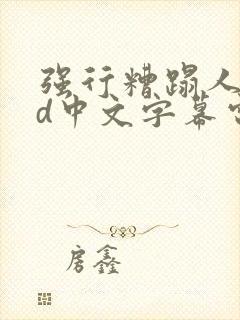 强行糟蹋人
d中文字幕
房鑫